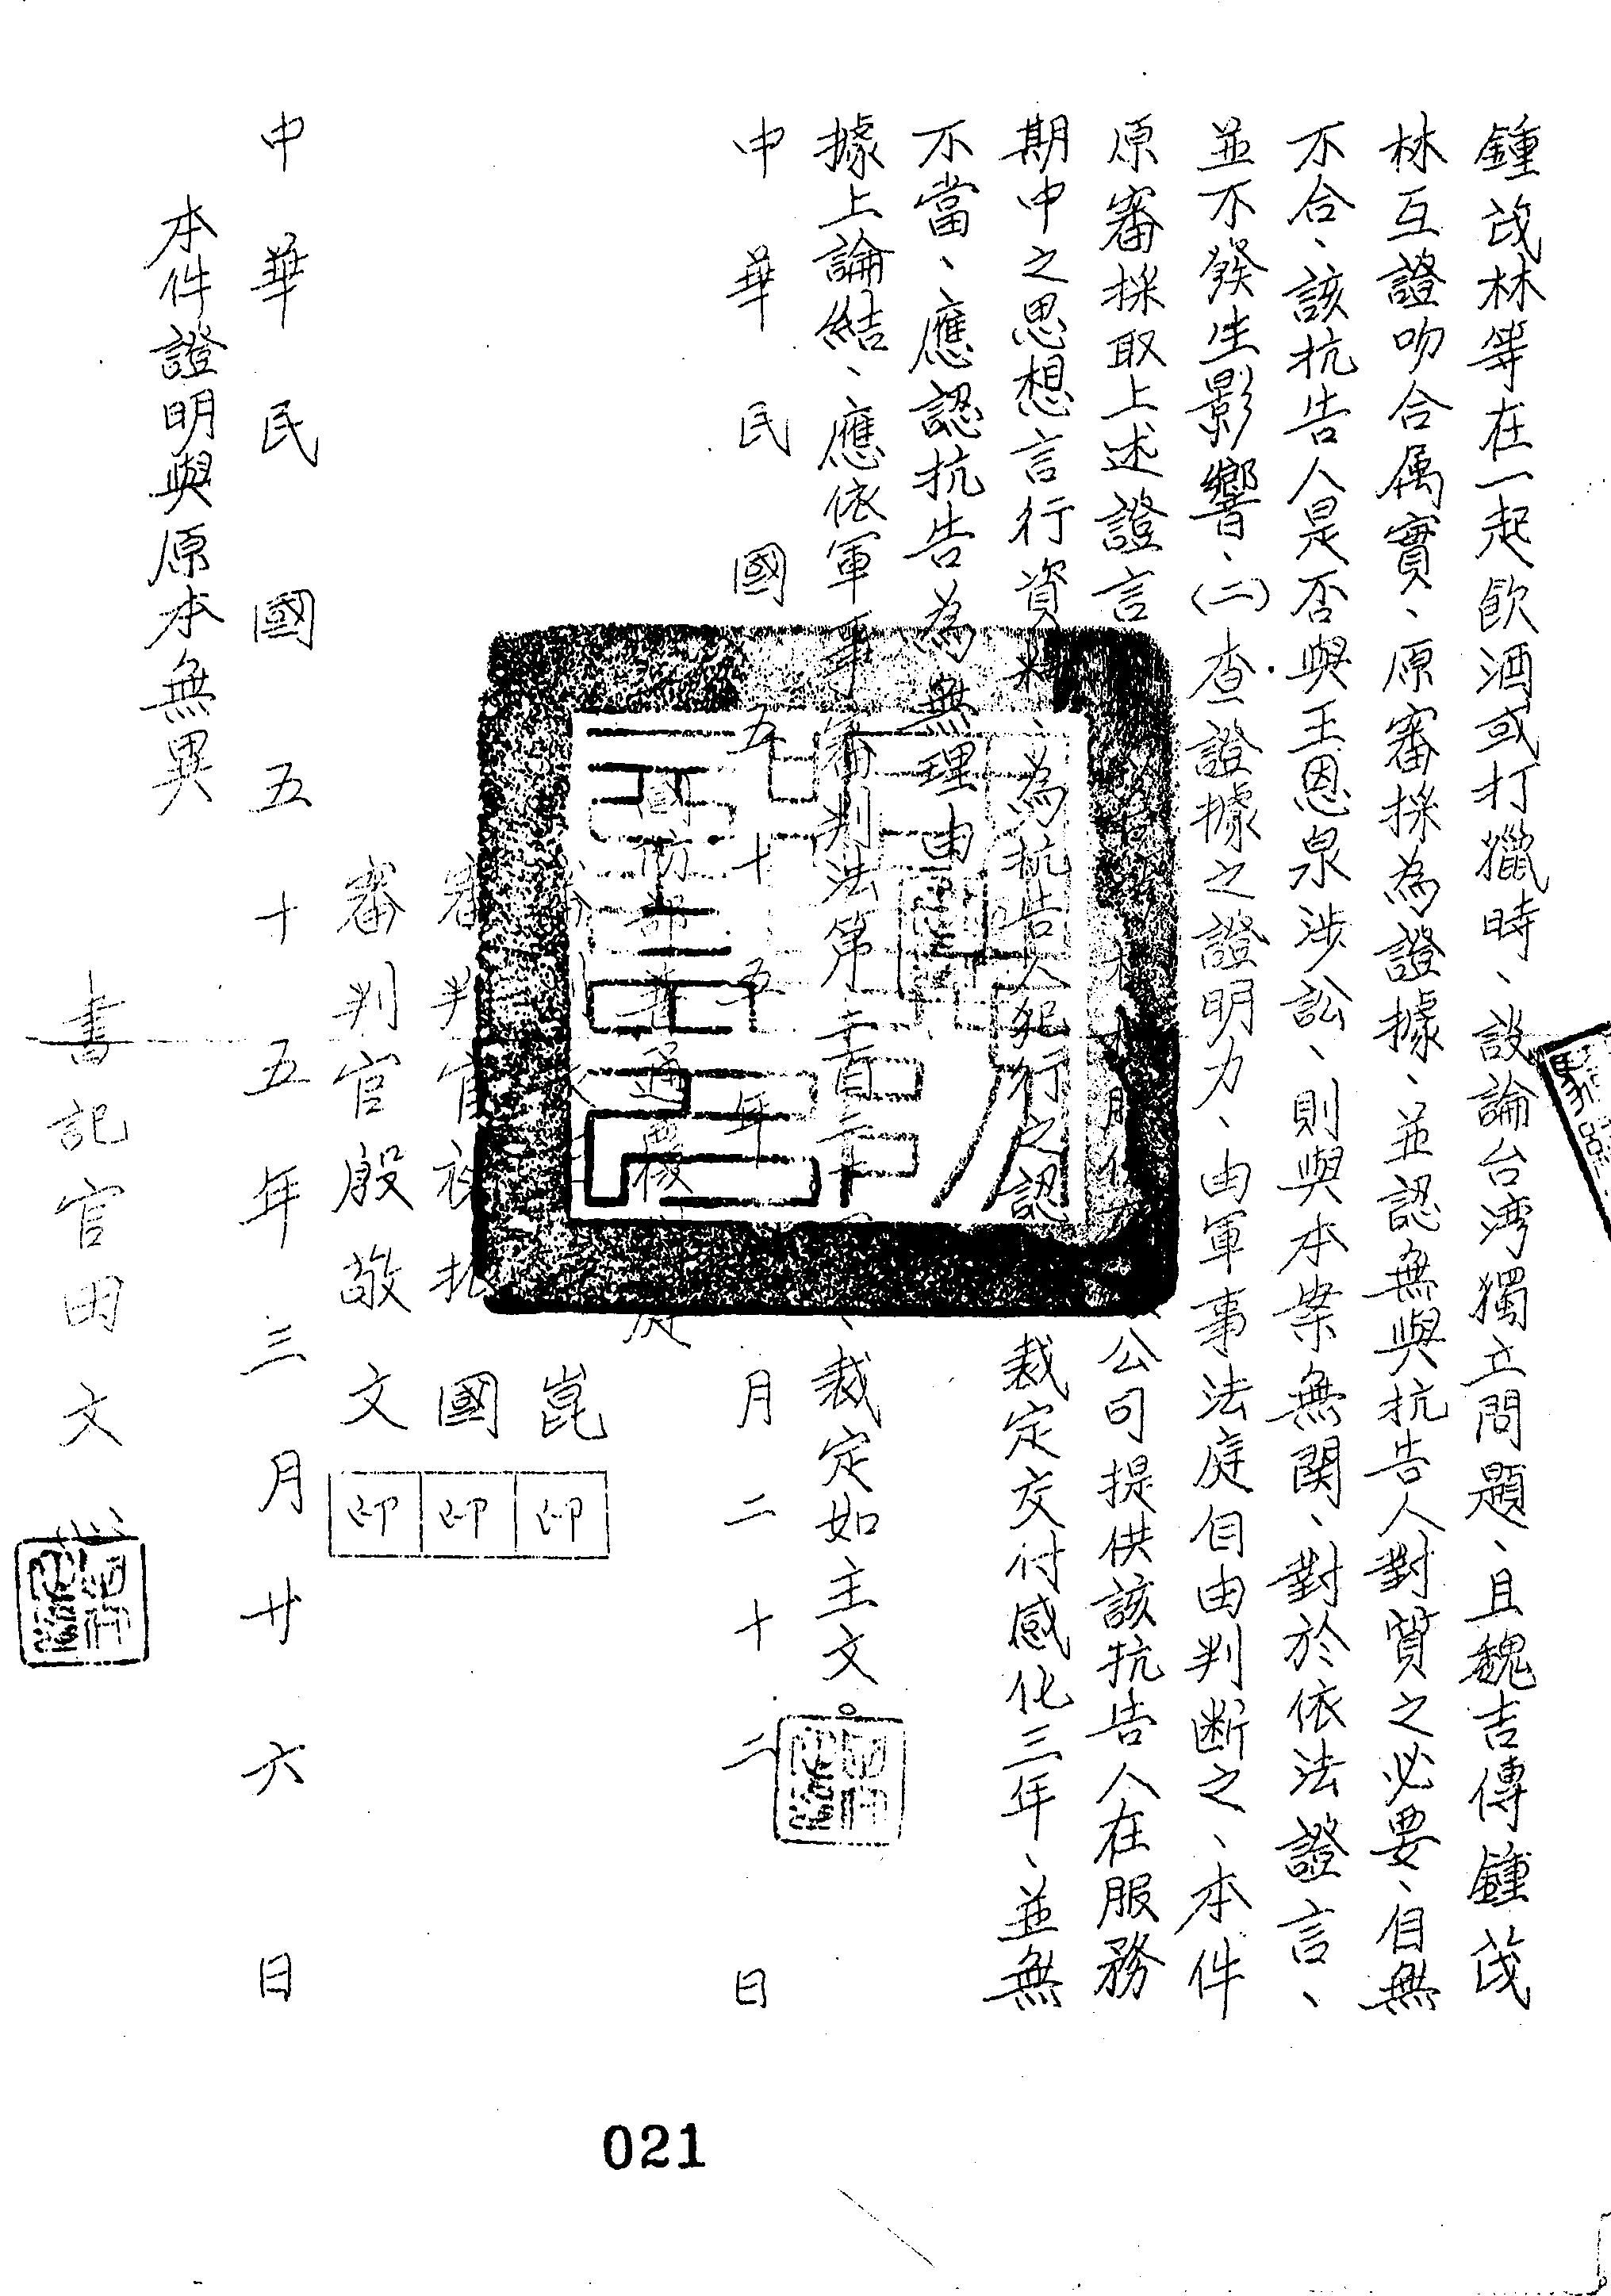 鍾茂林等在一起飲酒或打獵時、談論台湾獨立問題、且魏吉傳鍾茂
林互證吻合属實、原審採為證據、並認無與抗告人對質之必要、自無
不合、該抗告人是否與王恩泉涉訟、則與本案無関、對於依法證言、
並不發生影響、(二)查證據之證明力、由軍事法庭自由判断之、本件
原審採取上述證言公司提供該抗告人在服務
期中之思想言行資料、為抗告人犯行之認裁定交付感化三年、並無
不當、應認抗告為無理由
據上論結、應依軍事審判法第裁定如主文。
中華民國五十五年月二十二日
國防部普通覆庭
崑 印
審判官國 印
審判官殷敬文 印
中華民國五十五年三月廿六日
本件證明與原本無異
書記官田文
021